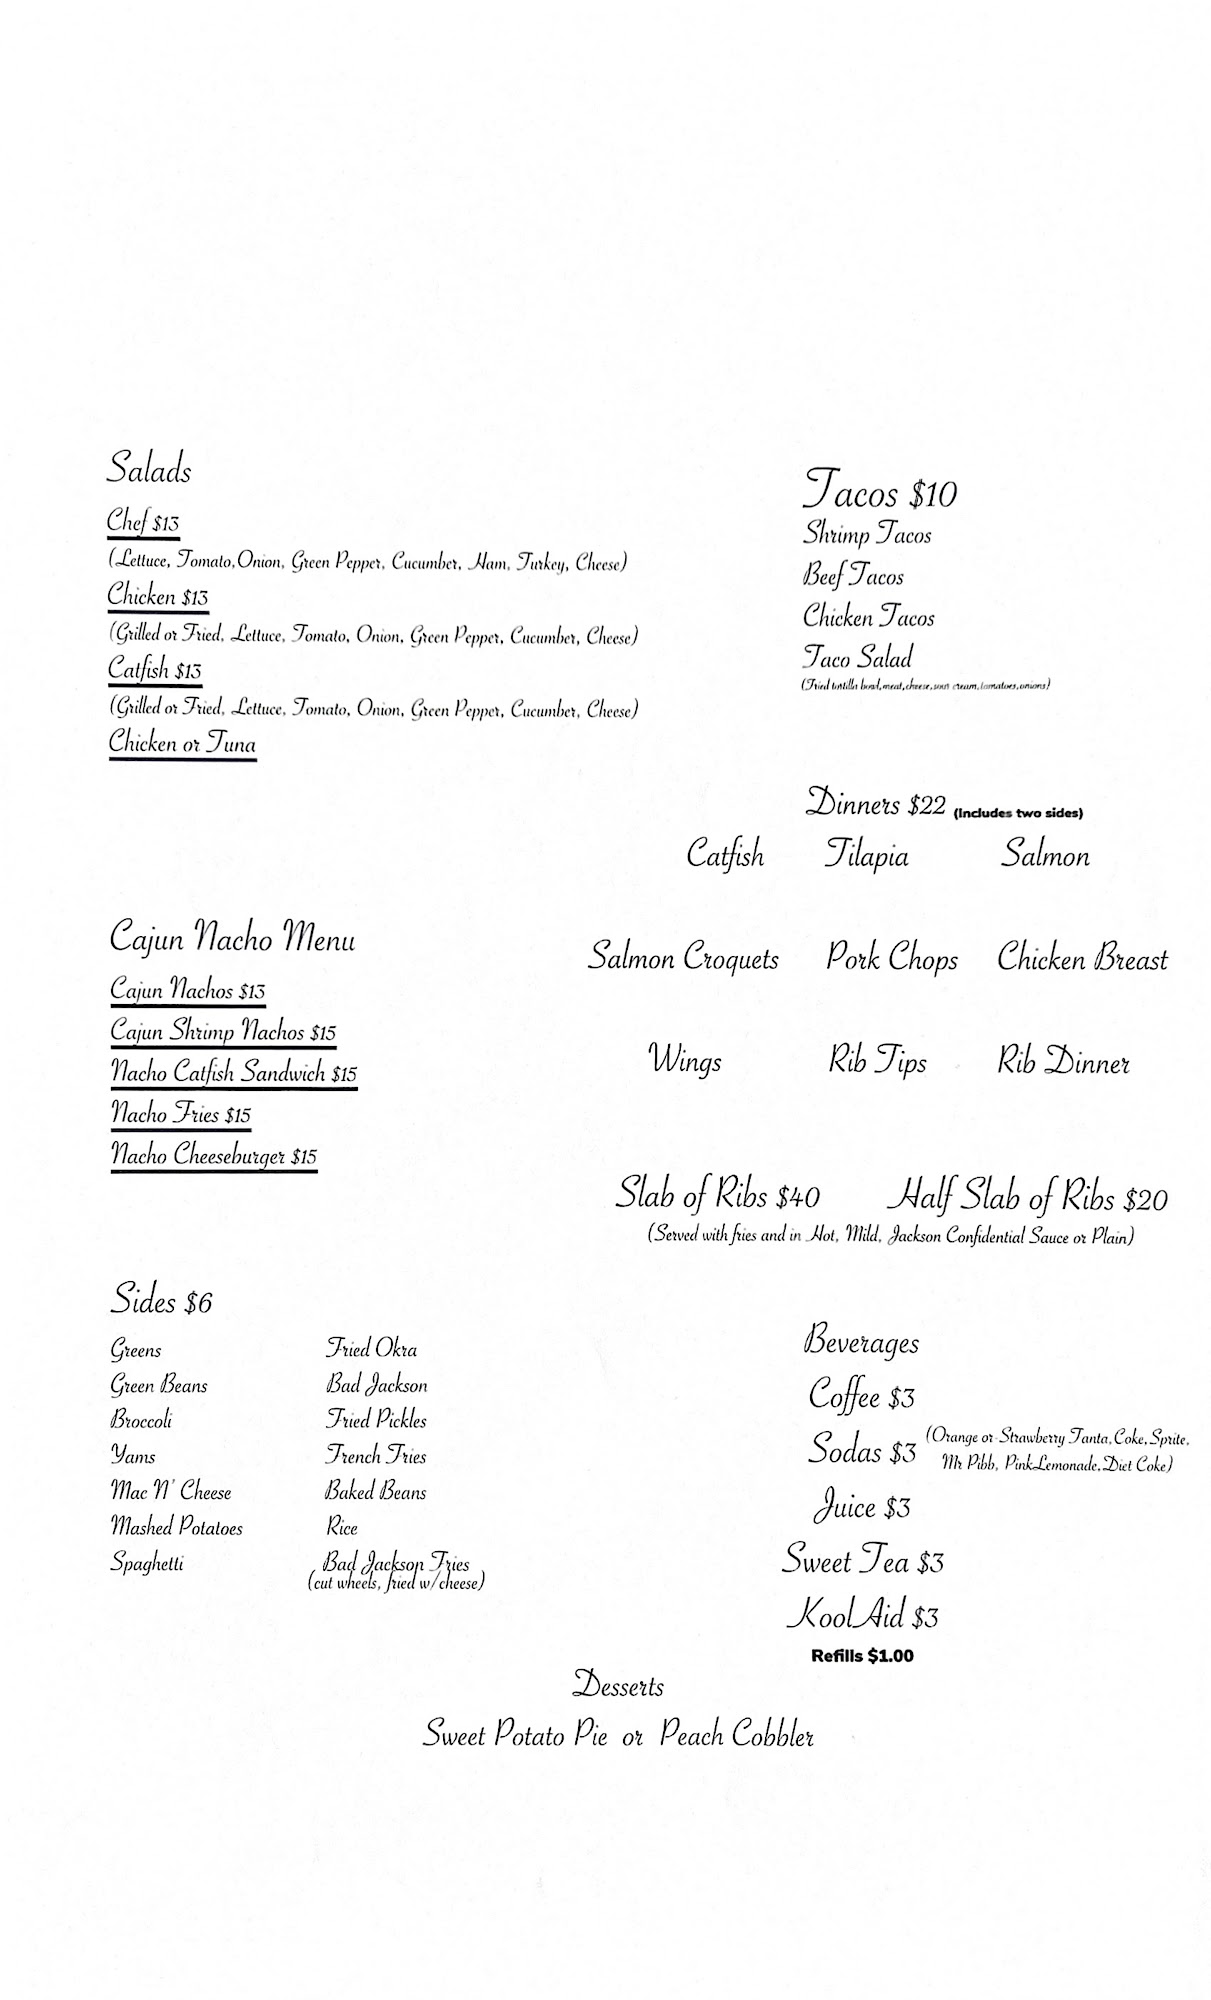 Salads
Chef $13
(Lettuce, Tomato, Onion, Green Pepper, Cucumber, Ham, Turkey, Cheese)
Chicken $13
(Grilled or Fried, Lettuce, Tomato, Onion, Green Pepper, Cucumber, Cheese)
Catfish $13
(Grilled or Fried, Lettuce, Tomato, Onion, Green Pepper, Cucumber, Cheese)
Chicken or Tuna
Cajun Nacho Menu
Cajun Nachos $13
Cajun Shrimp Nachos $15
Nacho Catfish Sandwich $15
Nacho Fries $15
Nacho Cheeseburger $15
Sides $6
Greens
Green Beans
Broccoli
Yams
Mac N' Cheese
Mashed Potatoes
Spaghetti
Fried Okra
Bad Jackson
Fried Pickles
French Fries
Baked Beans
Rice
Bad Jackson Fries
(cut wheels, fried w/cheese)
Tacos $10
Shrimp Tacos
Beef Tacos
Chicken Tacos
Taco Salad
(Fried tortilla bowl, meat, cheese, sour cream, tomatoes, onions)
Dinners $22 (Includes two sides)
Catfish Tilapia Salmon
Salmon Croquets Pork Chops Chicken Breast
Wings Rib Tips Rib Dinner
Slab of Ribs $40 Half Slab of Ribs $20
(Served with fries and in Hot, Mild, Jackson Confidential Sauce or Plain)
Beverages
Coffee $3
Sodas $3 (Orange or Strawberry Fanta, Coke, Sprite,
Mr Pibb, Pink Lemonade, Diet Coke)
Juice $3
Sweet Tea $3
Kool Aid $3
Refills $1.00
Desserts
Sweet Potato Pie or Peach Cobbler